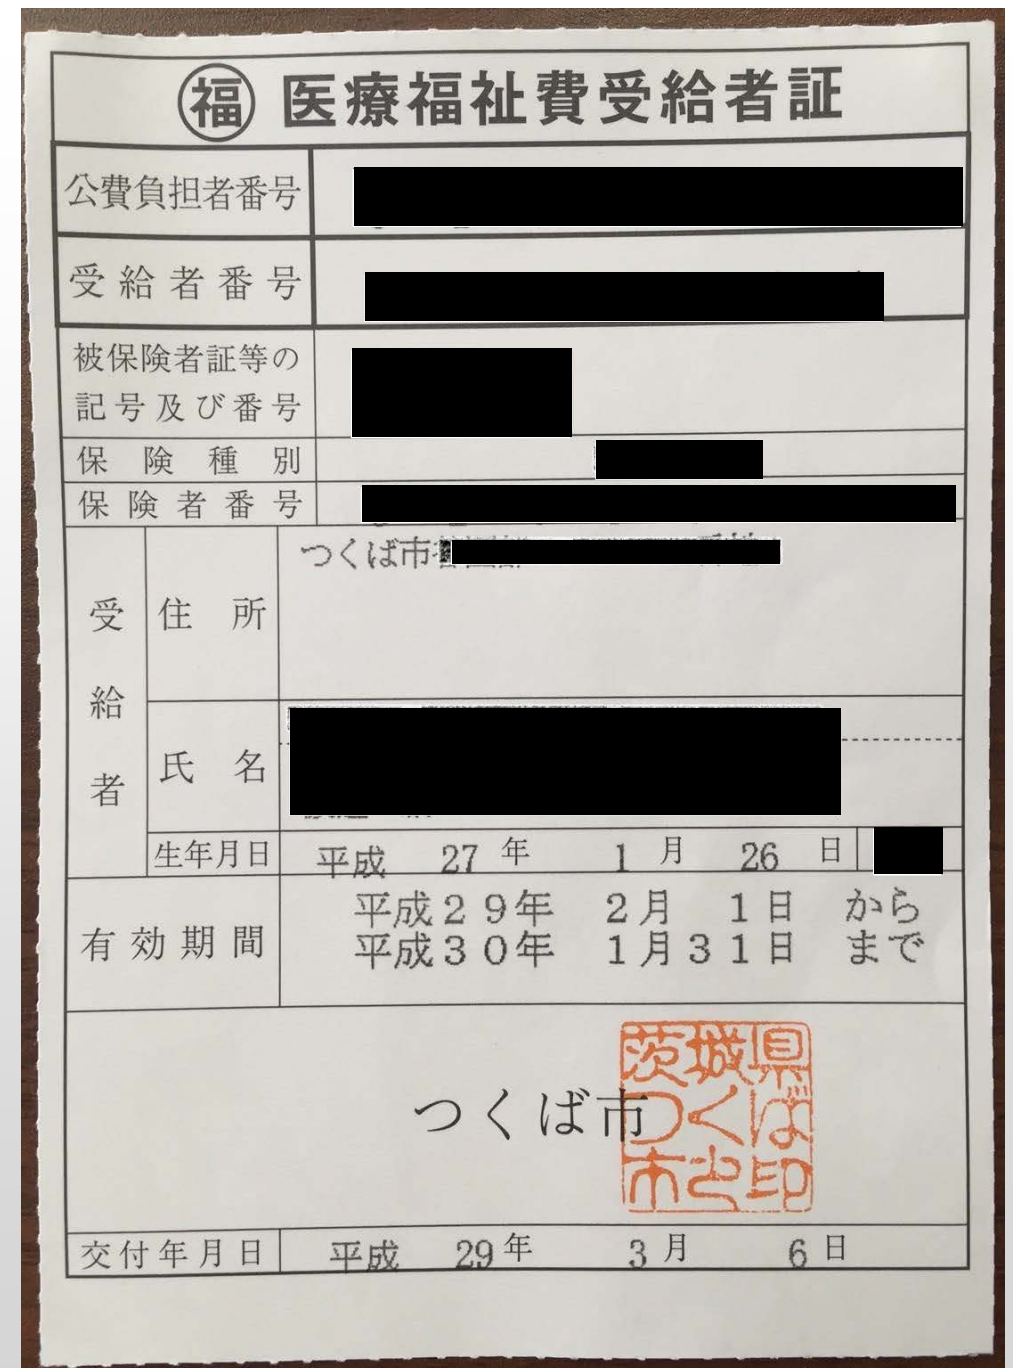 福 医療福祉費受給者証
公費負担者番号
受給者番号
被保険者証等の
記号及び番号
保険種別
保険者番号
受給者
住所
つくば市
氏名
生年月日 平成 27 年 1 月 26 日
有効期間
平成29年 2月 1日 から
平成30年 1月31日 まで
つくば市
茨城県
つくば
市之印
交付年月日 平成 29 年 3 月 6 日